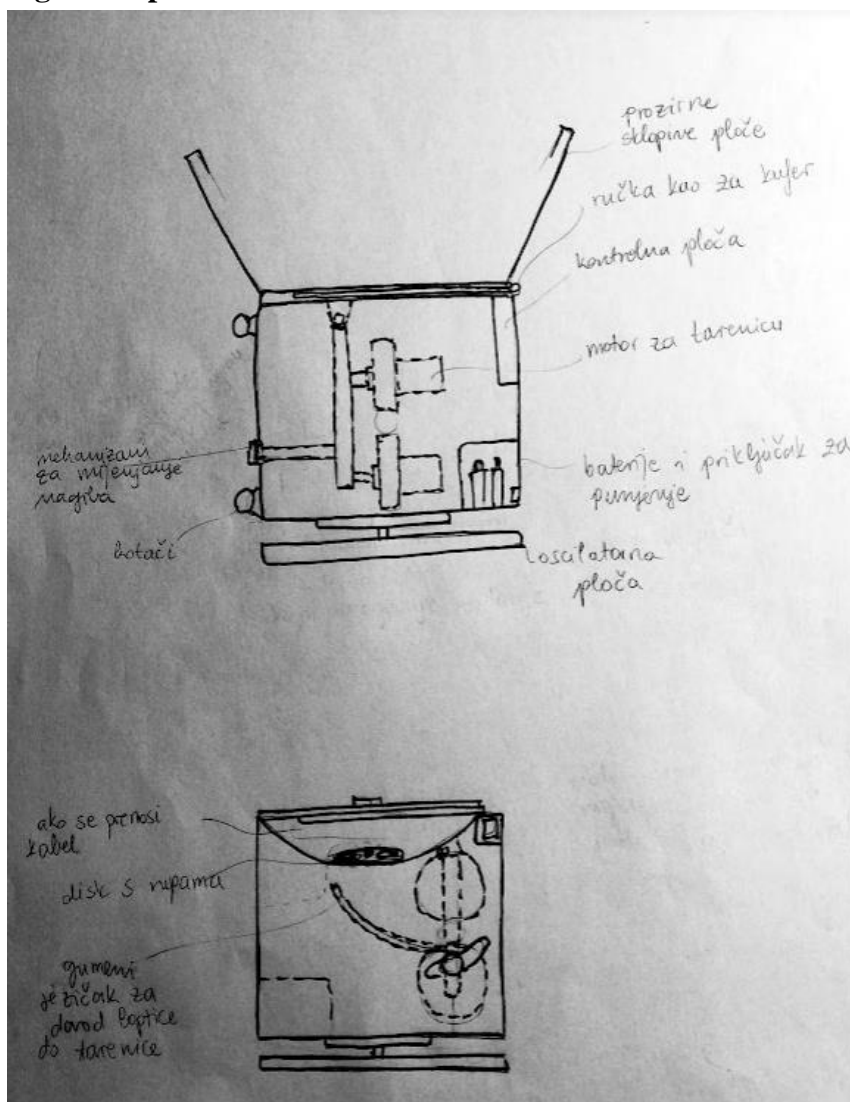 prozirne
sklopive ploče
ručka kao za kufer
kontrolna ploča
motor za tarenicu
mehanizam
za mijenjanje
nagiba
baterije i priključak za
punjenje
kotači
oscilatorna
ploča
ako se prenosi
kabel
disk s rupama
gumeni
jezičak za
dovod loptice
do tarenice